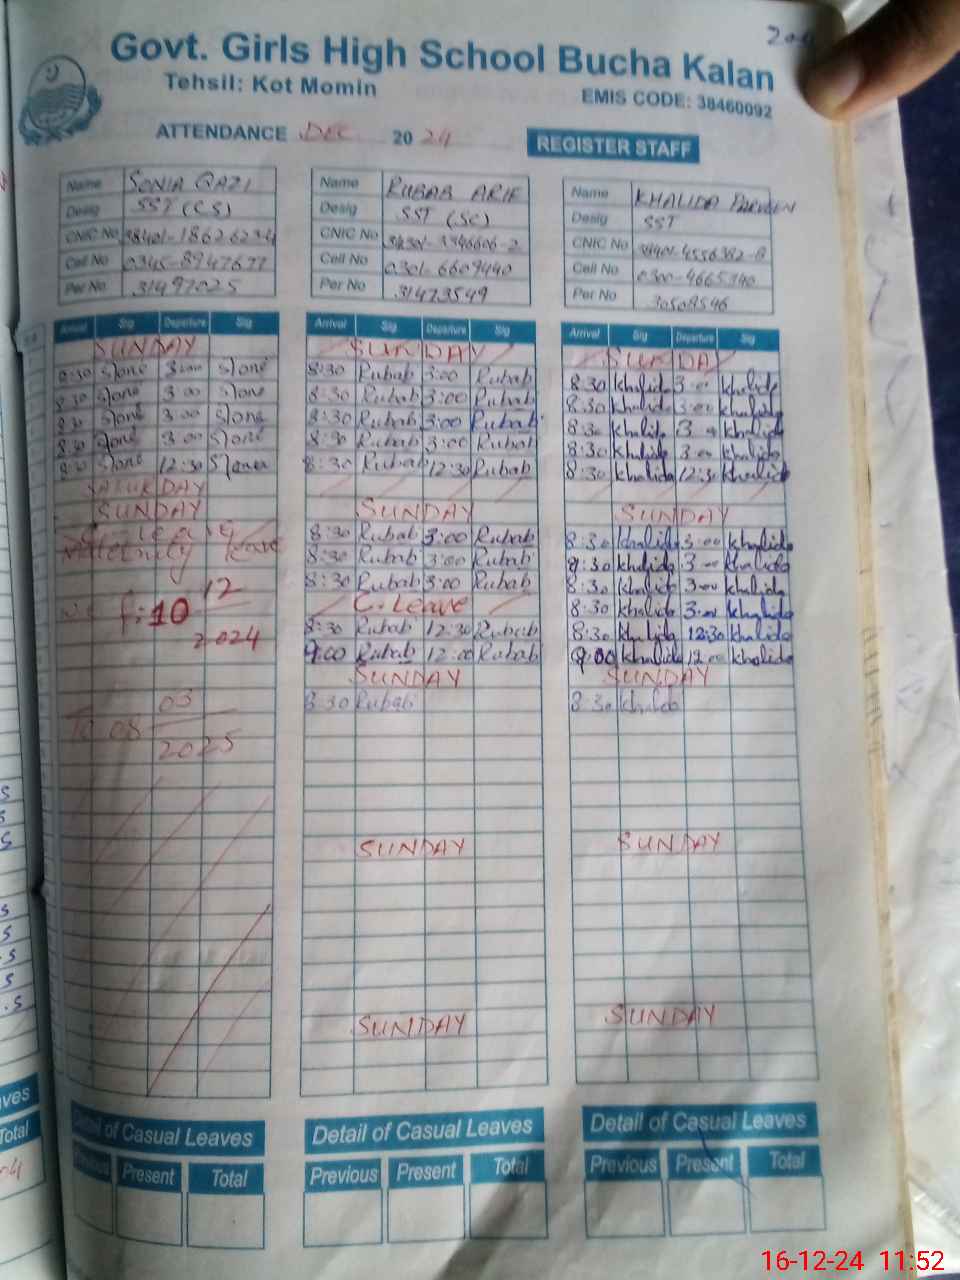 Govt. Girls High School Bucha Kalan
Tehsil: Kot Momin
EMIS CODE: 38460092
ATTENDANCE DEC 2024
REGISTER STAFF
Name SONIA QAZI
Desig SST (CS)
CNIC No
Cell No 0345-8947677
Per No 31497025
Name RUBAB ARIF
Desig SST (SC)
CNIC No
Cell No 0301-6609440
Per No 31473549
Name KHALIDA PARVEEN
Desig SST
CNIC No
Cell No 0300-4665340
Per No 30508596
Arrival Sig Departure Sig
SUNDAY
8:30 3:00
8:30 3:00
8:30 3:00
8:30 3:00
8:30 12:30
SATURDAY
SUNDAY
C. leave
Maternity leave
12
10
2024
03
To 08
2025
Arrival Sig Departure Sig
SUNDAY
8:30 Rubab 3:00 Rubab
8:30 Rubab 3:00 Rubab
8:30 Rubab 3:00 Rubab
8:30 Rubab 3:00 Rubab
8:30 Rubab 12:30 Rubab
SUNDAY
8:30 Rubab 3:00 Rubab
8:30 Rubab 3:00 Rubab
8:30 Rubab 3:00 Rubab
C. Leave
8:30 Rubab 12:30 Rubab
9:00 Rubab 12:00 Rubab
SUNDAY
8:30 Rubab
SUNDAY
SUNDAY
Arrival Sig Departure Sig
SUNDAY
8:30 khalida 3:00 khalida
8:30 khalida 3:00 khalida
8:30 khalida 3:00 khalida
8:30 khalida 3:00 khalida
8:30 khalida 12:30 khalida
SUNDAY
8:30 khalida 3:00 khalida
8:30 khalida 3:00 khalida
8:30 khalida 3:00 khalida
8:30 khalida 3:00 khalida
8:30 khalida 12:30 khalida
9:00 khalida 12:00 khalida
SUNDAY
8:30 khalida
SUNDAY
SUNDAY
Detail of Casual Leaves
Present Total
Detail of Casual Leaves
Previous Present Total
Detail of Casual Leaves
Previous Present Total
16-12-24 11:52